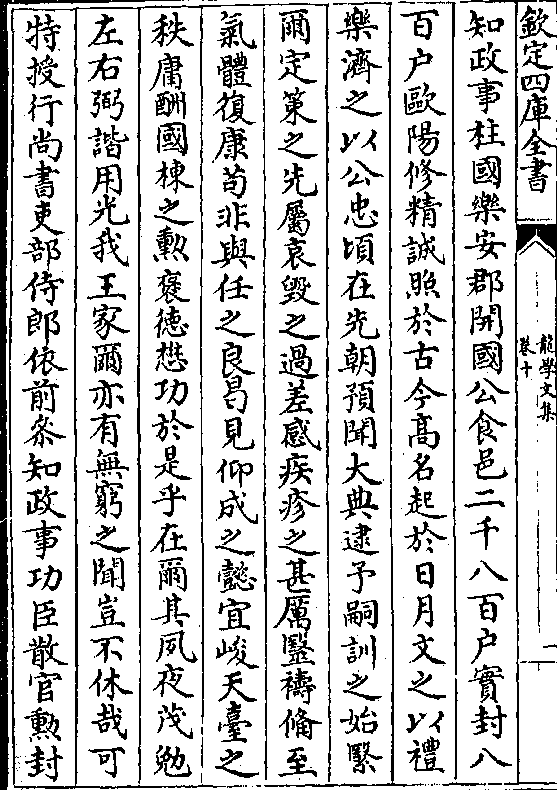 欽定四庫全書
龍學文集
卷十
一
知政事柱國樂安郡開國公食邑二千八百户實封八
百户歐陽修精誠照於古今髙名起於日月文之以禮
樂濟之以公忠頃在先朝預聞大典逮予嗣訓之始緊
爾定策之先屬哀毀之過差感疾疹之甚厲毉禱備至
氣體復康茍非與任之良曷見仰成之懿宜峻天臺之
秩庸酬國棟之勲襃徳懋功於是乎在爾其夙夜茂勉
左右弼諧用光我王家爾亦有無窮之聞豈不休哉可
特授行尚書吏部侍郎依前叅知政事功臣散官勲封